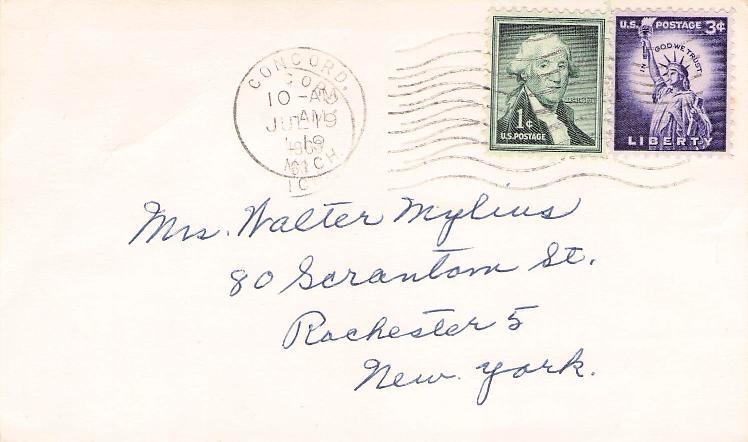 CONCORD,
CORD
10-AM
AM
JUL 19
MICH
U.S. POSTAGE 3¢
IN GOD WE TRUST
1¢
U.S. POSTAGE
LIBERTY
Mrs. Walter Mylius
80 Scrantom St.
Rochester 5
New York.